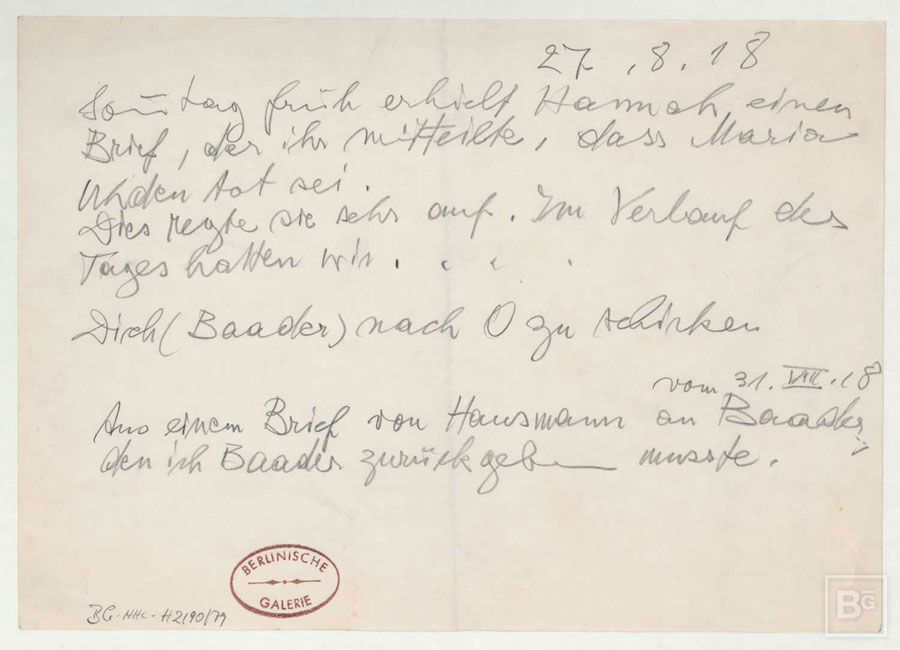 27. 8. 18
Sonntag früh erhielt Hannah einen
Brief, der ihr mitteilte, dass Maria
Uhden tot sei.
Dies regte sie sehr auf. Im Verlauf des
Tages hatten wir . . . .
Dich (Baader) nach O zu schicken
vom 31. VIII. 18
Aus einem Brief von Hausmann an Baader,
den ich Baader zurückgeben musste.
BERLINISCHE
GALERIE
BG-NHC-H2190/79
BG